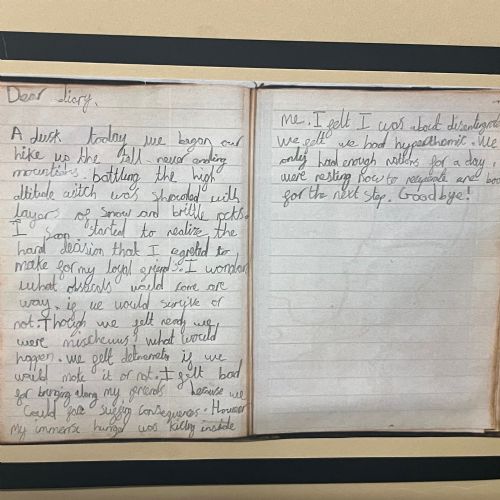 Dear diary,
A dusk today we began our
hike up the tall never ending
mountians. battling the high
altitude witch was shrouded with
layers of snow and brittle rocks.
I soon started to realize the
hard decision that I agreed to
make for my loyal friends. I wonder
what obsticals would come are
way. if we would survive or
not. Though we felt ready we
were mischevus what would
happen. we felt if we
would make it or not. I felt bad
for bringing along my friends because we
could face consequences. However
my immense hunger was killing inside
me. I felt I was about
We felt we had hyperthomic. We
only had enough rations for a day.
were resting now to are
for the next step. Goodbye!